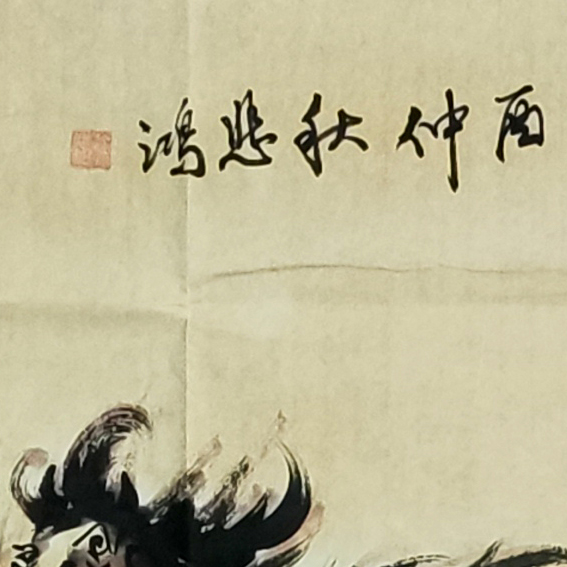 酉仲秋悲鸿